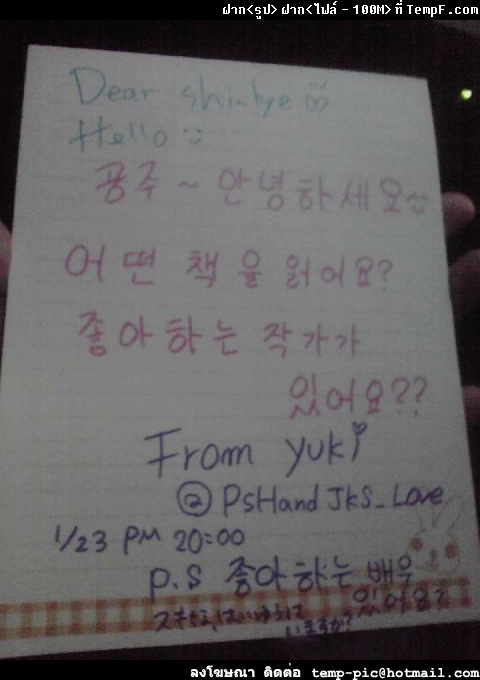 ฝาก<รูป> ฝาก<ไฟล์ - 100M> ที่ TempF.com
Dear shinhye
Hello
공주~안녕하세요
어떤 책을 읽어요?
좋아하는 작가가
있어요??
From yuki
@PsHandJKS_Love
1/23 PM 20:00
P.S 좋아하는 배우
있어요?
いますか?
ลงโฆษณา ติดต่อ temp-pic@hotmail.com